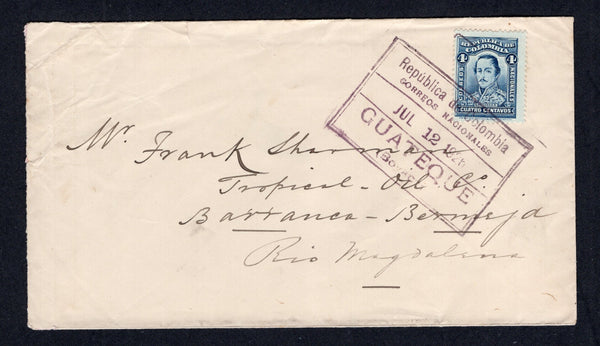 REPUBLICA DE
COLOMBIA
4 4
CORREOS NACIONALES
CUATRO CENTAVOS
República de Colombia
CORREOS NACIONALES
JUL 12
GUATEQUE
Mr. Frank
Tropical - Oil Co.
Barranca - Bermeja
Rio Magdalena